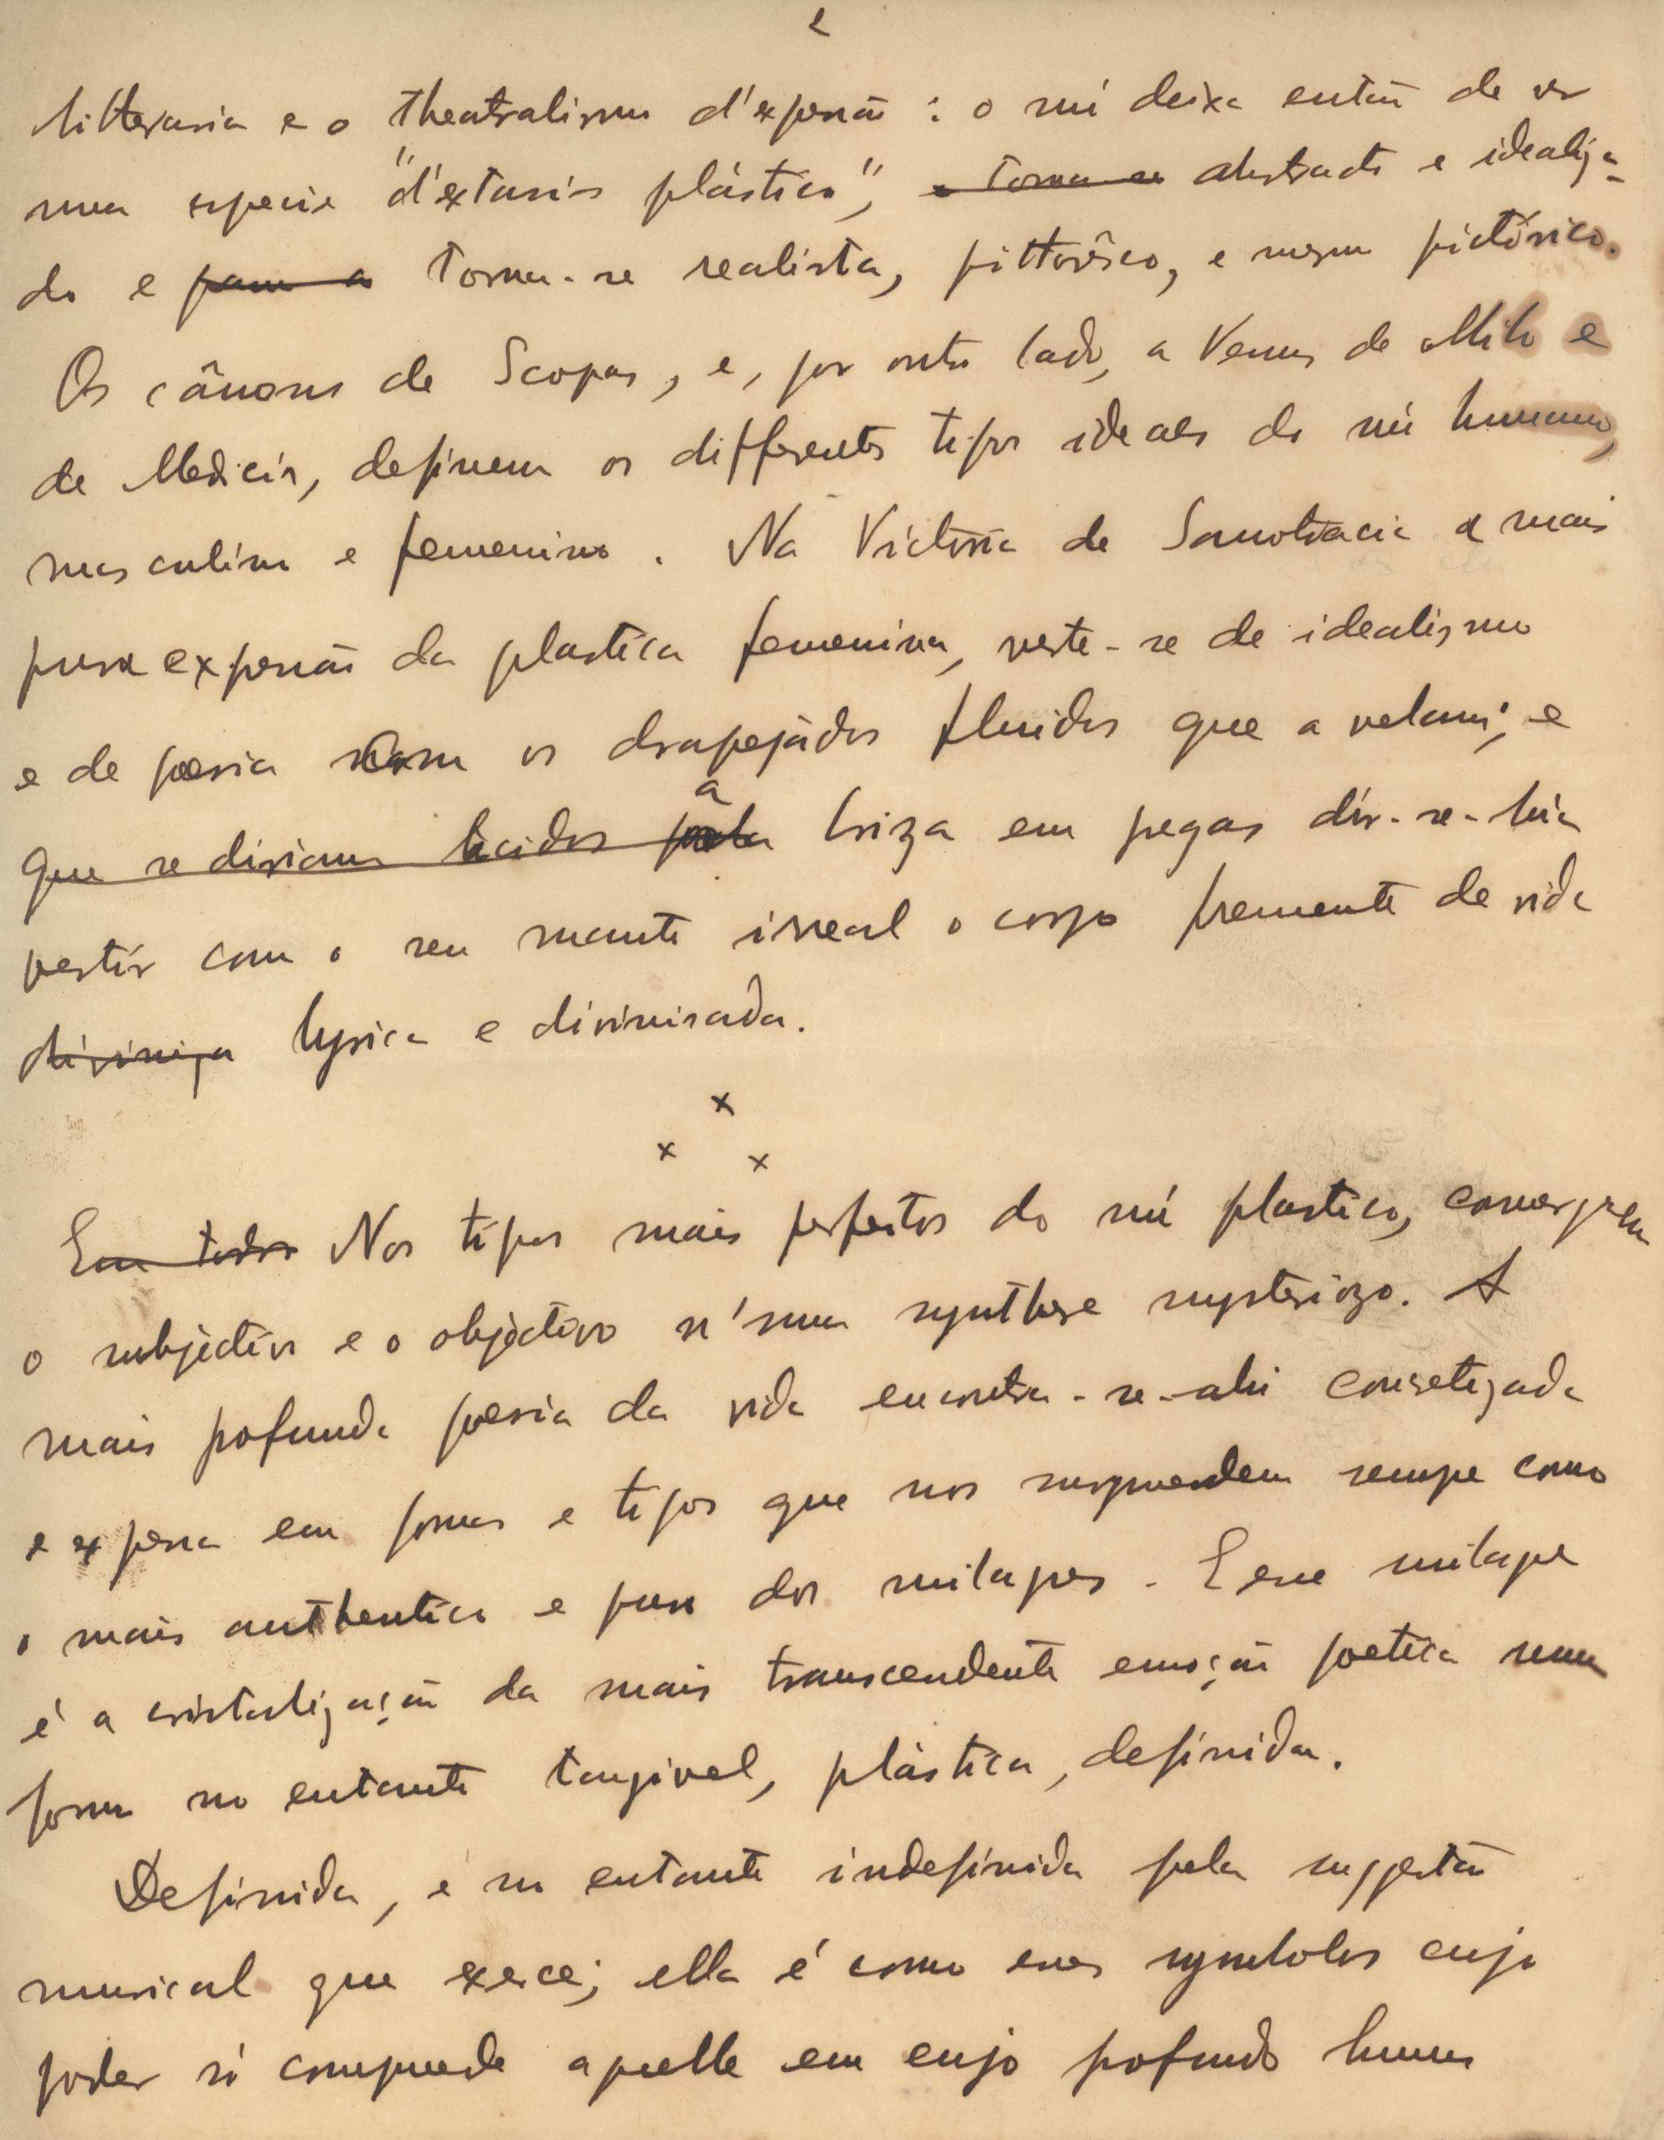 2
litteraria e o theatralismo d'expressão : o nú deixa então de ser
uma especie "d'extasis plástico", e torna-se abstracto e idealiza-
do e passa a torna-se realista, pittorêsco, e mesmo pictórico.
Os cânones de Scopas, e, por outro lado, a Venus de Milo e
de Medicis, definem os differentes tipos ideaes do nú humano,
masculino e femenino. Na Victória de Samotracia a mais
pura expressão da plastica femenina, veste-se de idealismo
e de poesia com os drapejádos fluidos que a velam; e
a
que se diriam tecidos pela briza em pregas dir-se-hia
vestir com o seu manto irreal o corpo fremente de vida
diviniza lyrica e divinisada.
x
x x
Em todos Nos tipos mais perfeitos do nú plastico, convergem
o subjectivo e o objectivo n'uma synthese mysterioza. A
mais profunda poesia da vida encontra-se-ahi concretizada
e expressa em formas e tipos que nos surpreendem sempre como
o mais authentico e puro dos milagres. E esse milagre
é a cristalização da mais transcendente emoção poetica numa
forma no entanto tangivel, plástica, definida.
Definida, e no entanto indefinida pela suggestão
musical que exerce; ella é como esses symbolos cujo
poder só comprende aquelle em cujo profundo humus